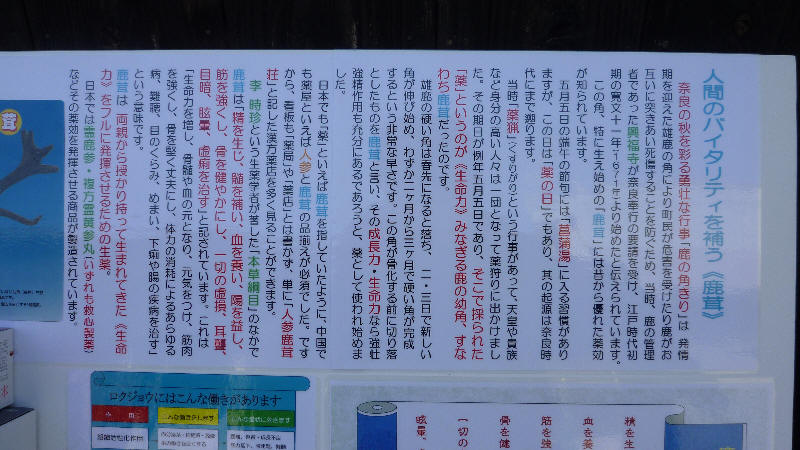 人間のバイタリティを補う《鹿茸》
奈良の秋を彩る勇壮な行事「鹿の角きり」は 発情
期を迎えた雄鹿の角により町民が危害を受けたり鹿がお
互いに突きあい死傷することを防ぐため、当時、鹿の管理
者であった興福寺が奈良奉行の要請を受け、江戸時代初
期の寛文十一年(1671年)より始めたと伝えられています。
この角、特に生え始めの「鹿茸」には昔から優れた薬効
が知られています。
五月五日の端午の節句には「菖蒲湯」に入る習慣があり
ますが、この日は「薬の日」でもあり、其の起源は奈良時
代にまで遡ります。
当時「薬猟」(くすりがり)という行事があって、天皇や貴族
など身分の高い人々は一団となって薬狩りに出かけまし
た。その期日が例年五月五日であり、そこで採られた
「薬」というのが《生命力》みなぎる鹿の幼角、すな
わち鹿茸だったのです。
雄鹿の硬い角は春先になると落ち、二・三日で新しい
角が伸び始め、わずか二ヶ月から三ヶ月で硬い角が完成
するという非常な早さです。この角が骨化する前に切り落
としたものを鹿茸と言い、その成長力・生命力なら強壮
強精作用も充分にあるであろうと、薬として使われ始めま
した。
日本でも「薬」といえば鹿茸を指していたように、中国で
も薬屋といえば人参と鹿茸の品揃えが必須でした。です
から、看板も「薬局」や「薬店」とは書かず、単に「人参鹿茸
荘」と記した漢方薬店を多く見ることができます。
李 時珍という生薬学者が著した「本草綱目」のなかで
鹿茸は「精を生じ、髄を補い、血を養い、陽を益し、
筋を強くし、骨を健やかにし、一切の虚損、耳聾、
目暗、眩暈、虚痢を治す」と記されています。これは
「生命力を増し、骨髄や血の元となり、元気をつけ、筋肉
を強くし、骨を堅く丈夫にし、体力の消耗によるあらゆる
病、難聴、目のくらみ、めまい、下痢や腸の疾病を治す」
という意味です。
鹿茸は 両親から授かり持って生まれてきた《生命
力》をフルに発揮させるための生薬。
日本では霊鹿参・複方霊黄参丸(いずれも救心製薬)
などその薬効を発揮させる商品が製造されています。
茸
ロクジョウにはこんな働きがあります
精を生
血を養
筋を強
骨を健
一切の
眩暈、